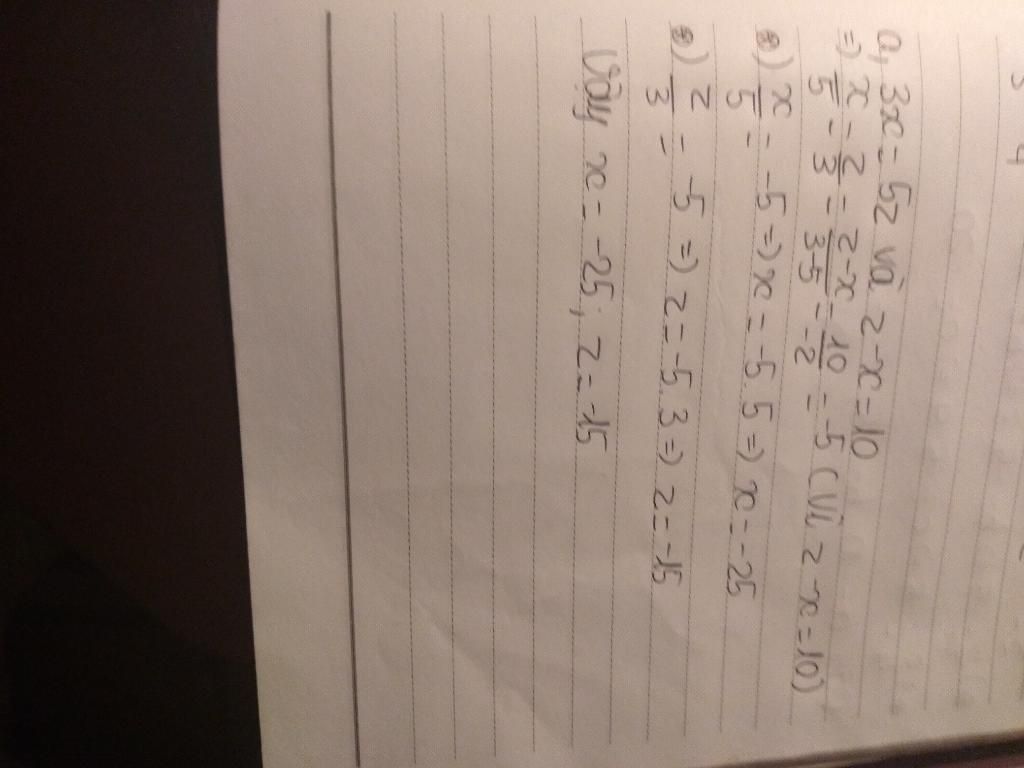 a, 3x = 5z và z-x=10
=) x/5 = z/3 = z-x/3-5 = 10/-2 = -5 (Vì z-x=10)
*) x/5 = -5 =) x = -5.5 =) x = -25
*) z/3 = -5 =) z = -5.3 =) z = -15
Vậy x = -25; z = -15